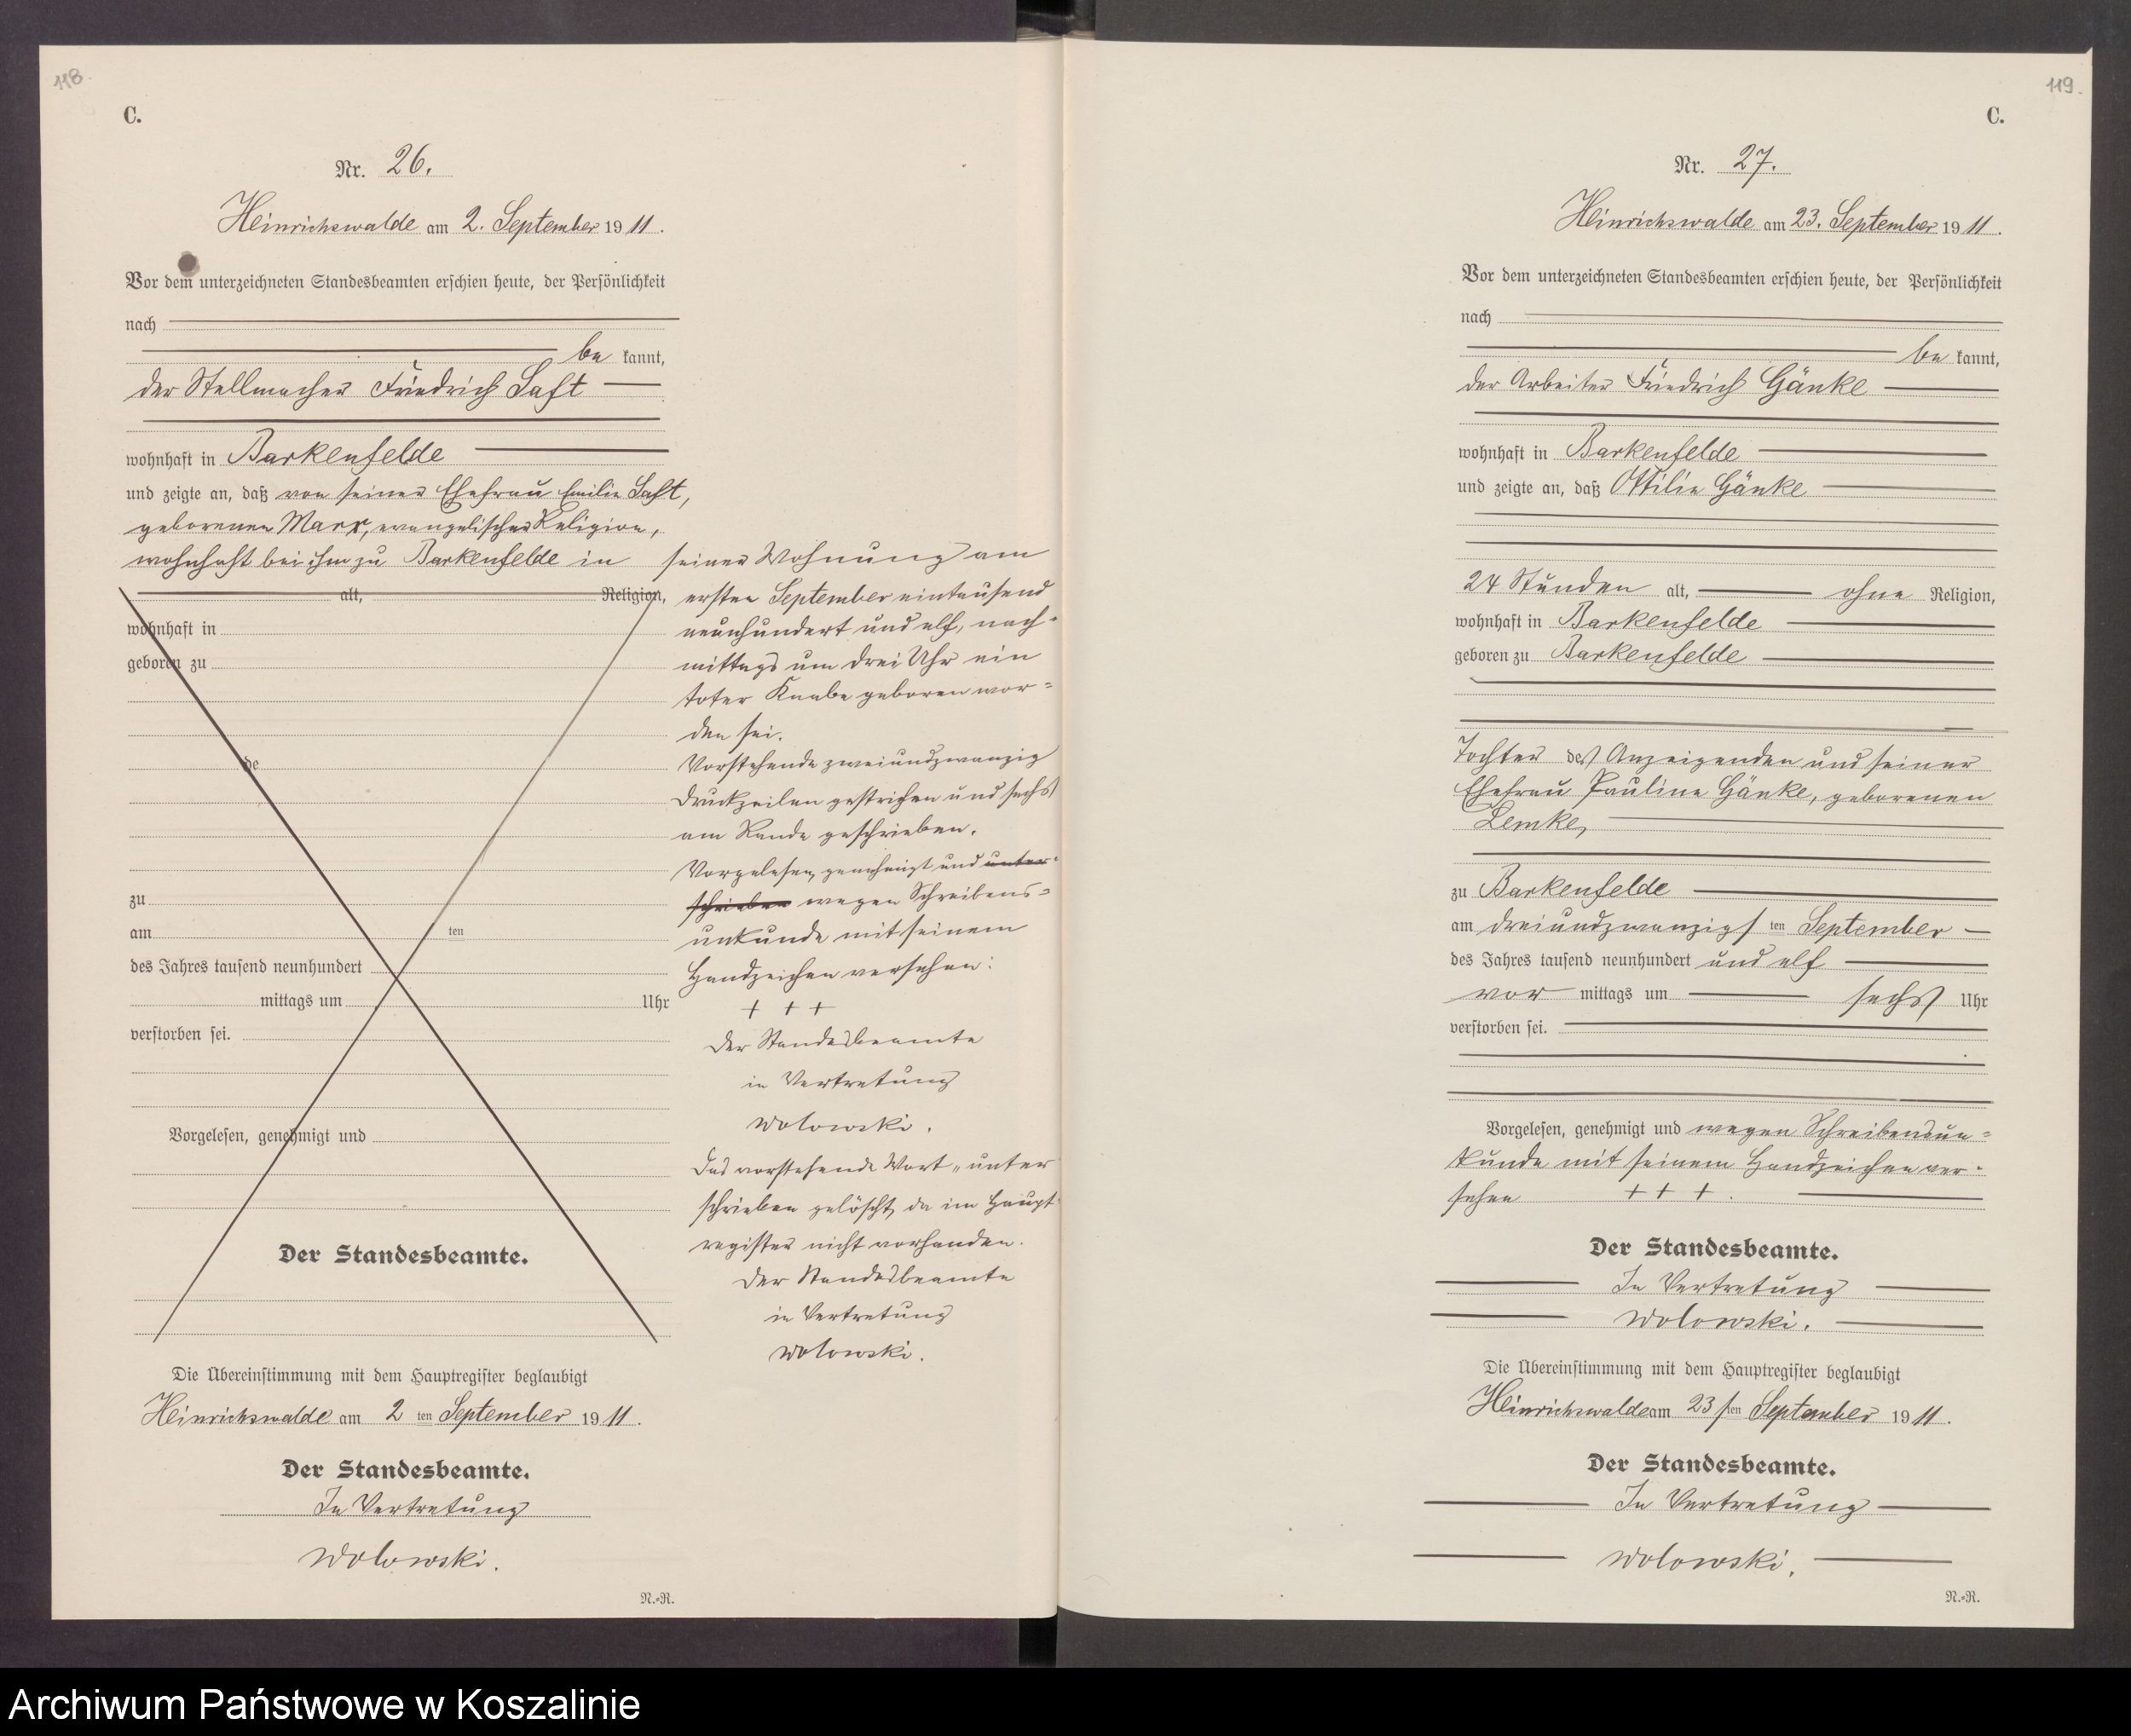 118.
C.
Nr. 26.
Heinrichswalde am 2. September 1911.
Vor dem unterzeichneten Standesbeamten erschien heute, der Persönlichkeit
nach
be kannt,
der Stellmacher Friedrich Saft
wohnhaft in Barkenfelde
und zeigte an, daß von seiner Ehefrau Emilie Saft,
geborenen Marx, evangelischer Religion,
wohnhaft bei ihm zu Barkenfelde in
alt, Religion,
wohnhaft in
geboren zu
de
zu
am ten
des Jahres tausend neunhundert
mittags um Uhr
verstorben sei.
Vorgelesen, genehmigt und
Der Standesbeamte.
seiner Wohnung am
ersten September eintausend
neunhundert und elf, nach-
mittags um drei Uhr ein
toter Knabe geboren wor-
den sei.
Vorstehende zweiundzwanzig
Druckzeilen gestrichen und sechs
am Rande geschrieben.
Vorgelesen, genehmigt und unter-
schrieben wegen Schreibens-
unkunde mit seinem
Handzeichen versehen:
+ + +
Der Standesbeamte
in Vertretung
Wolowski.
Das vorstehende Wort „unter
schrieben gelöscht, da im Haupt-
register nicht vorhanden.
Der Standesbeamte
in Vertretung
Wolowski.
Die Übereinstimmung mit dem Hauptregister beglaubigt
Heinrichswalde am 2 ten September 1911.
Der Standesbeamte.
In Vertretung
Wolowski.
N.-R.
119.
C.
Nr. 27.
Heinrichswalde am 23. September 1911.
Vor dem unterzeichneten Standesbeamten erschien heute, der Persönlichkeit
nach
be kannt,
der Arbeiter Friedrich Gänke
wohnhaft in Barkenfelde
und zeigte an, daß Ottilie Gänke
24 Stunden alt, ohne Religion,
wohnhaft in Barkenfelde
geboren zu Barkenfelde
Tochter des Anzeigenden und seiner
Ehefrau Pauline Gänke, geborenen
Lemke,
zu Barkenfelde
am dreiundzwanzigs ten September
des Jahres tausend neunhundert und elf
vor mittags um sechs Uhr
verstorben sei.
Vorgelesen, genehmigt und wegen Schreibensun-
kunde mit seinem Handzeichen ver-
sehen + + + .
Der Standesbeamte.
In Vertretung
Wolowski.
Die Übereinstimmung mit dem Hauptregister beglaubigt
Heinrichswalde am 23 sten September 1911.
Der Standesbeamte.
In Vertretung
Wolowski.
N.-R.
Archiwum Państwowe w Koszalinie